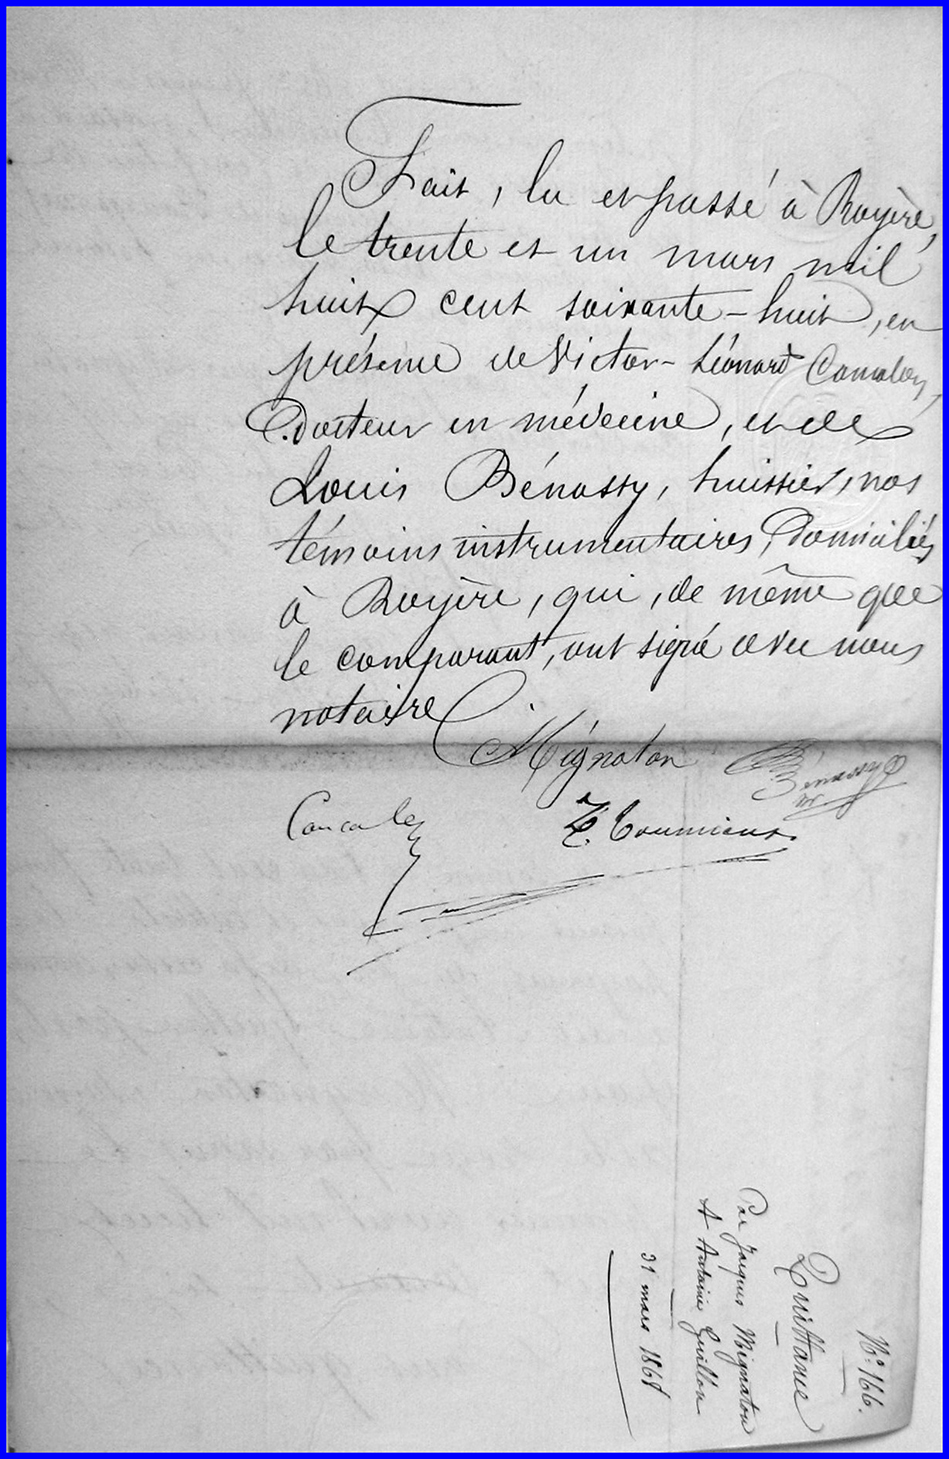 Fait, lu et passé à Royère,
le trente et un mars mil
huit cent soixante-huit, en
présence de Victor-Léonard Cancalon,
Docteur en médecine, et de
Louis Bénassy, huissier, nos
témoins instrumentaires, Domiciliés
à Royère, qui, de même que
le comparant, ont signé avec nous
notaire
Mignaton
Bénassy
Cancalon
Toumieux
N° 166.
Quittance
Par Jacques Mignaton
A Antoine Guillon
31 mars 1868